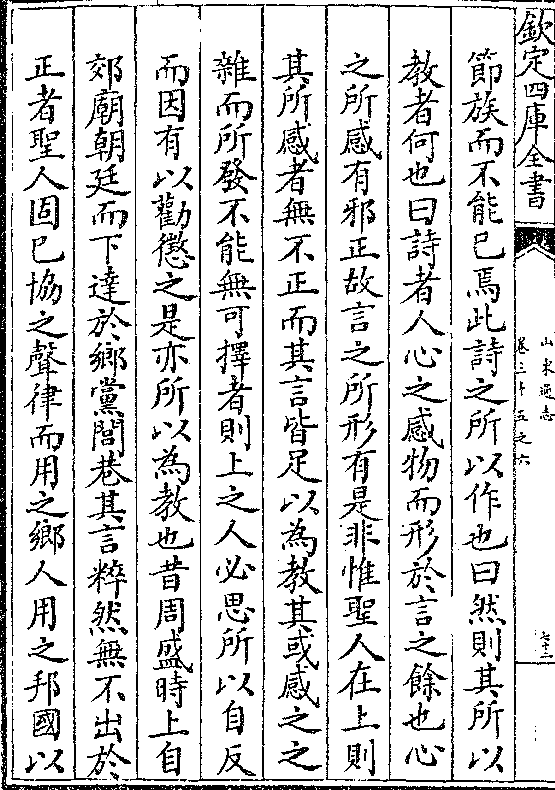 欽定四庫全書
山東通志
卷三十五之六
節族而不能已焉此詩之所以作也曰然則其所以
教者何也曰詩者人心之感物而形於言之餘也心
之所感有邪正故言之所形有是非惟聖人在上則
其所感者無不正而其言皆足以為教其或感之之
雜而所發不能無可擇者則上之人必思所以自反
而因有以勸懲之是亦所以為教也昔周盛時上自
郊廟朝廷而下達於鄉黨閭巷其言粹然無不出於
正者聖人固已協之聲律而用之鄉人用之邦國以